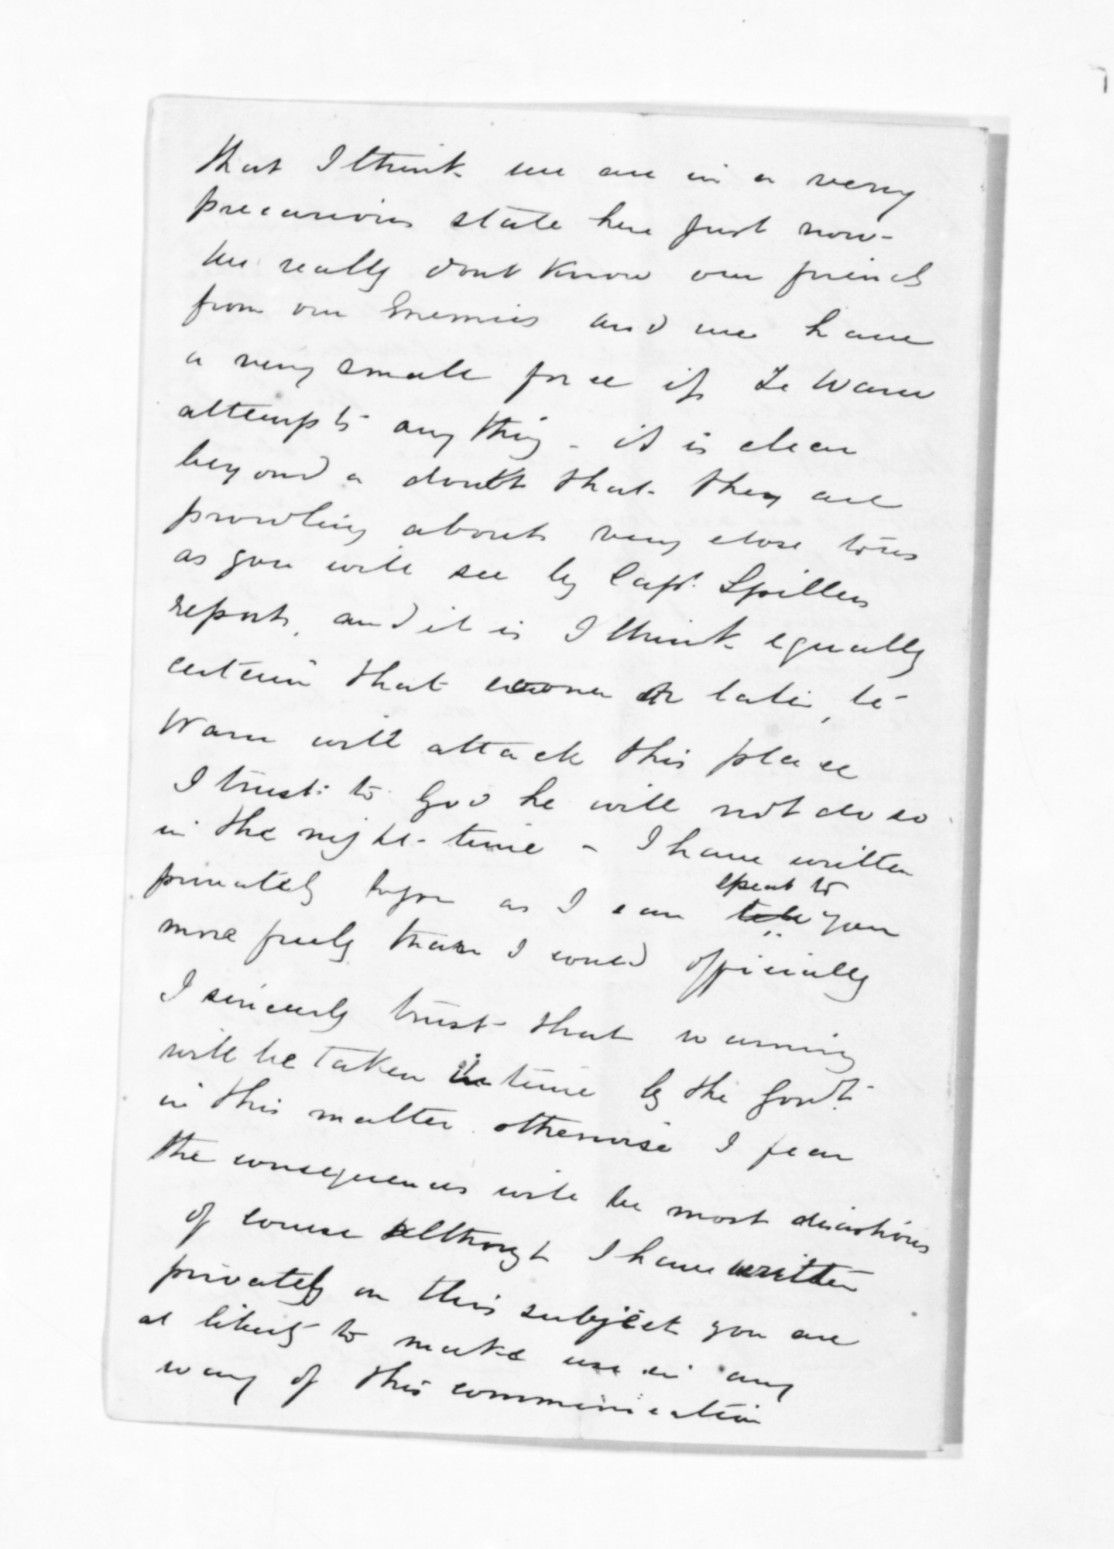 that I think we are in a very
precarious state here just now -
We really dont know our friends
from our Enemies and we have
a very small force if Te Waru
attempts any thing - it is clear
beyond a doubt that they are
prowling about very close to us
as you will see by Capt. Spillers
report, and it is I think equally
certain that sooner or later, Te
Waru will attack this place
I trust to God he will not do so
in the night-time - I have written
speak to
privately to you as I can tell you
more freely than I could officially
I sincerely trust that warning
will be taken in time by the Govt.
in this matter otherwise I fear
the consequences will be most disastrous
of course although I have written
privately on this subject you are
at liberty to make use in any
way of this communication